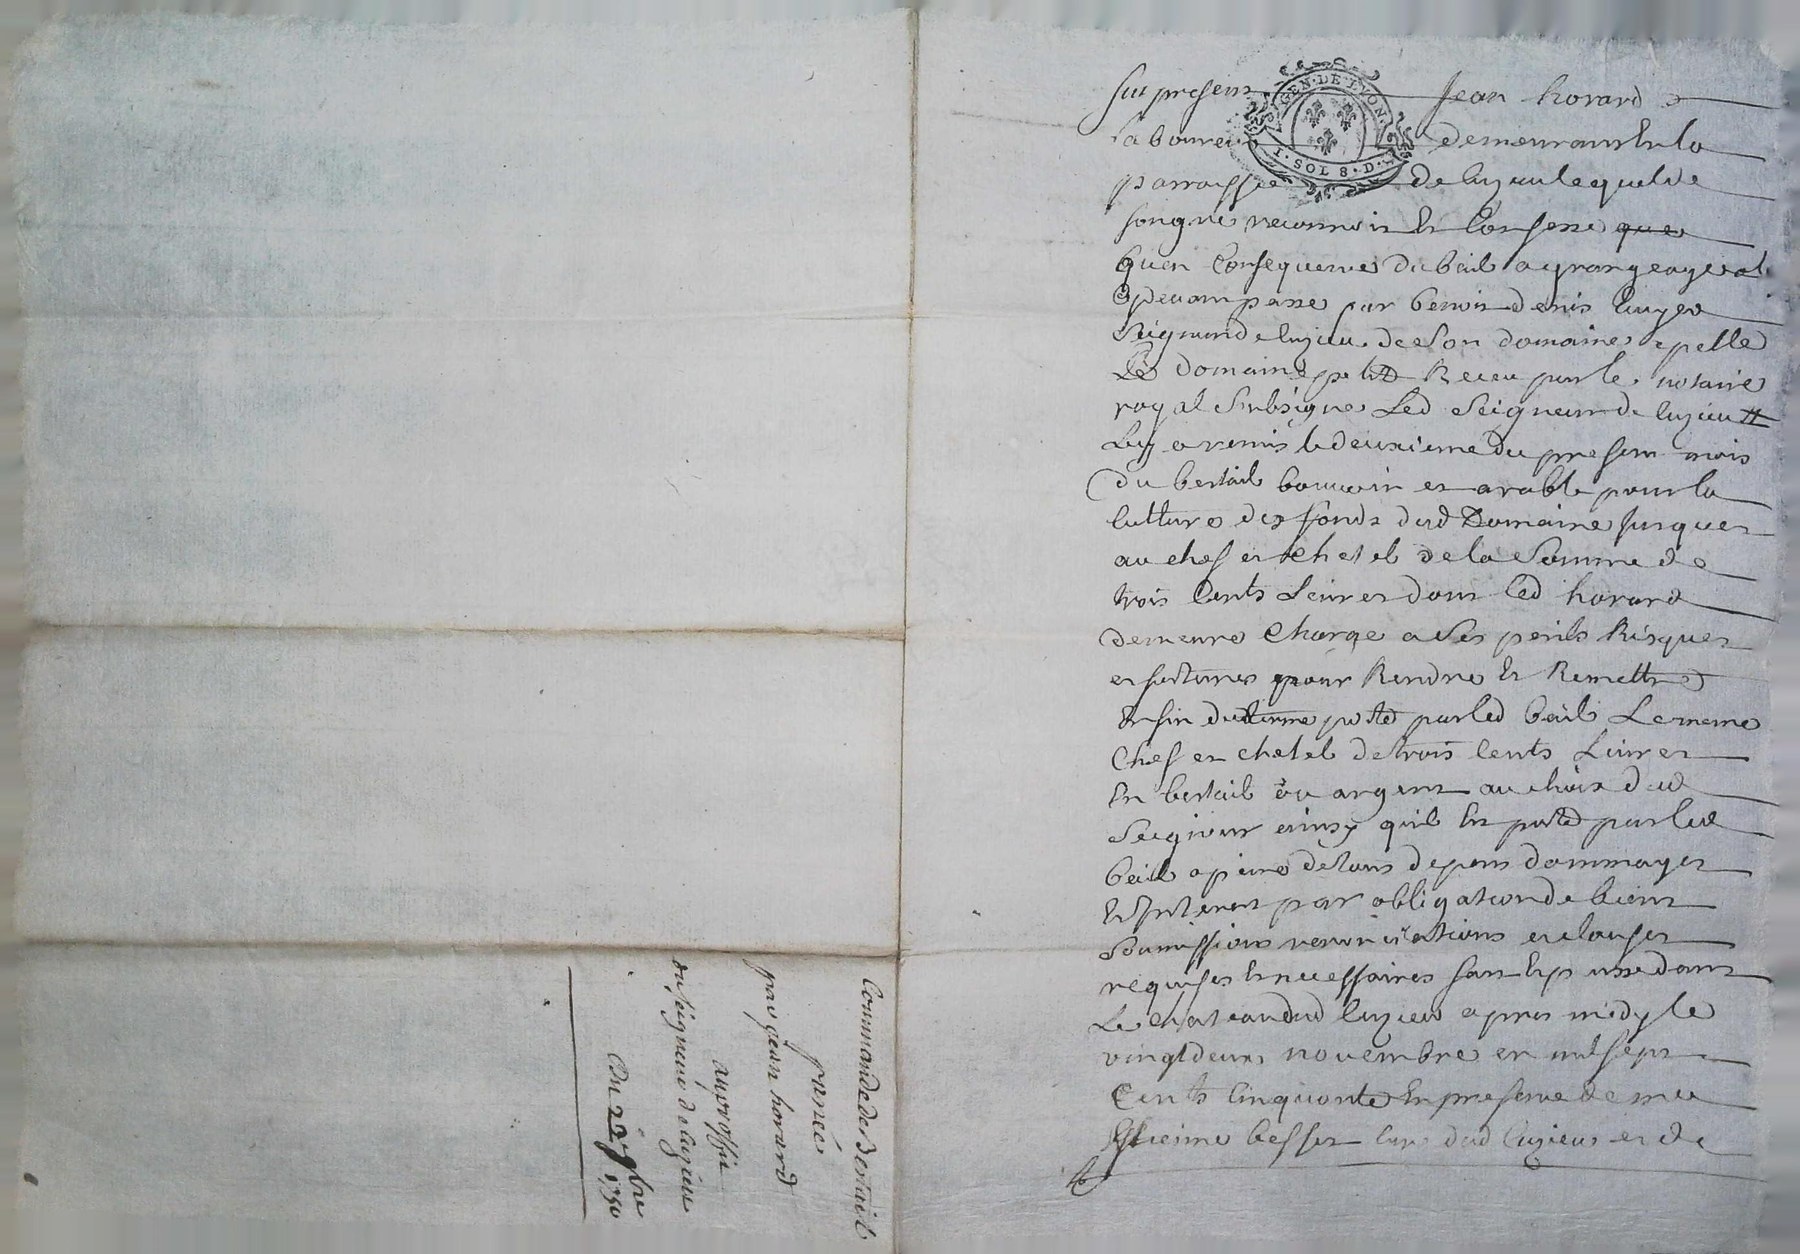 fut present Jean horard
laboureur demeurant En la
parroisse de luzieu lequel de
son gre reconnoit Et Confesse que
quen Consequence du bail a grangeage
cydevant passé par benoit denis Ecuyer
Seigneur de luzieu de Son domaine apellé
Le domaine petit Receu par le notaire
royal Subsigné Led Seigneur de luzieu
Luy a remis le deuxieme du present mois
du bestail bouvoir et arable pour la
Culture des fonds dud Domaine Jusques
au chef et chetel de la Somme de
trois Cents Livres dont led horard
demeure Chargé a Ses perils Risques
et fortunes pour Rendre Et Remettre
En fin du terme porté par led bail Le meme
Chef et chetel de trois Cents Livres
En bestail ou argent au choix dud
Seigneur ainsy quil Est porté par led
bail a peine de tous depens dommages
Et Interest par obligation de biens
Soumissions renonciations et clauses
requises Et necessaires fait Et passé dans
Le chateau dud luzieu apres midy le
vingt deux novembre en mil sept
Cents Cinquante En presence de mre
besset Curé dud luzieu et de
I GEN·DE·LYON·
I·SOL 8·D·
Commande de Bestail
passée
par jean horard
au proffit
du seigneur de luzieu
Du 22 9bre 1750